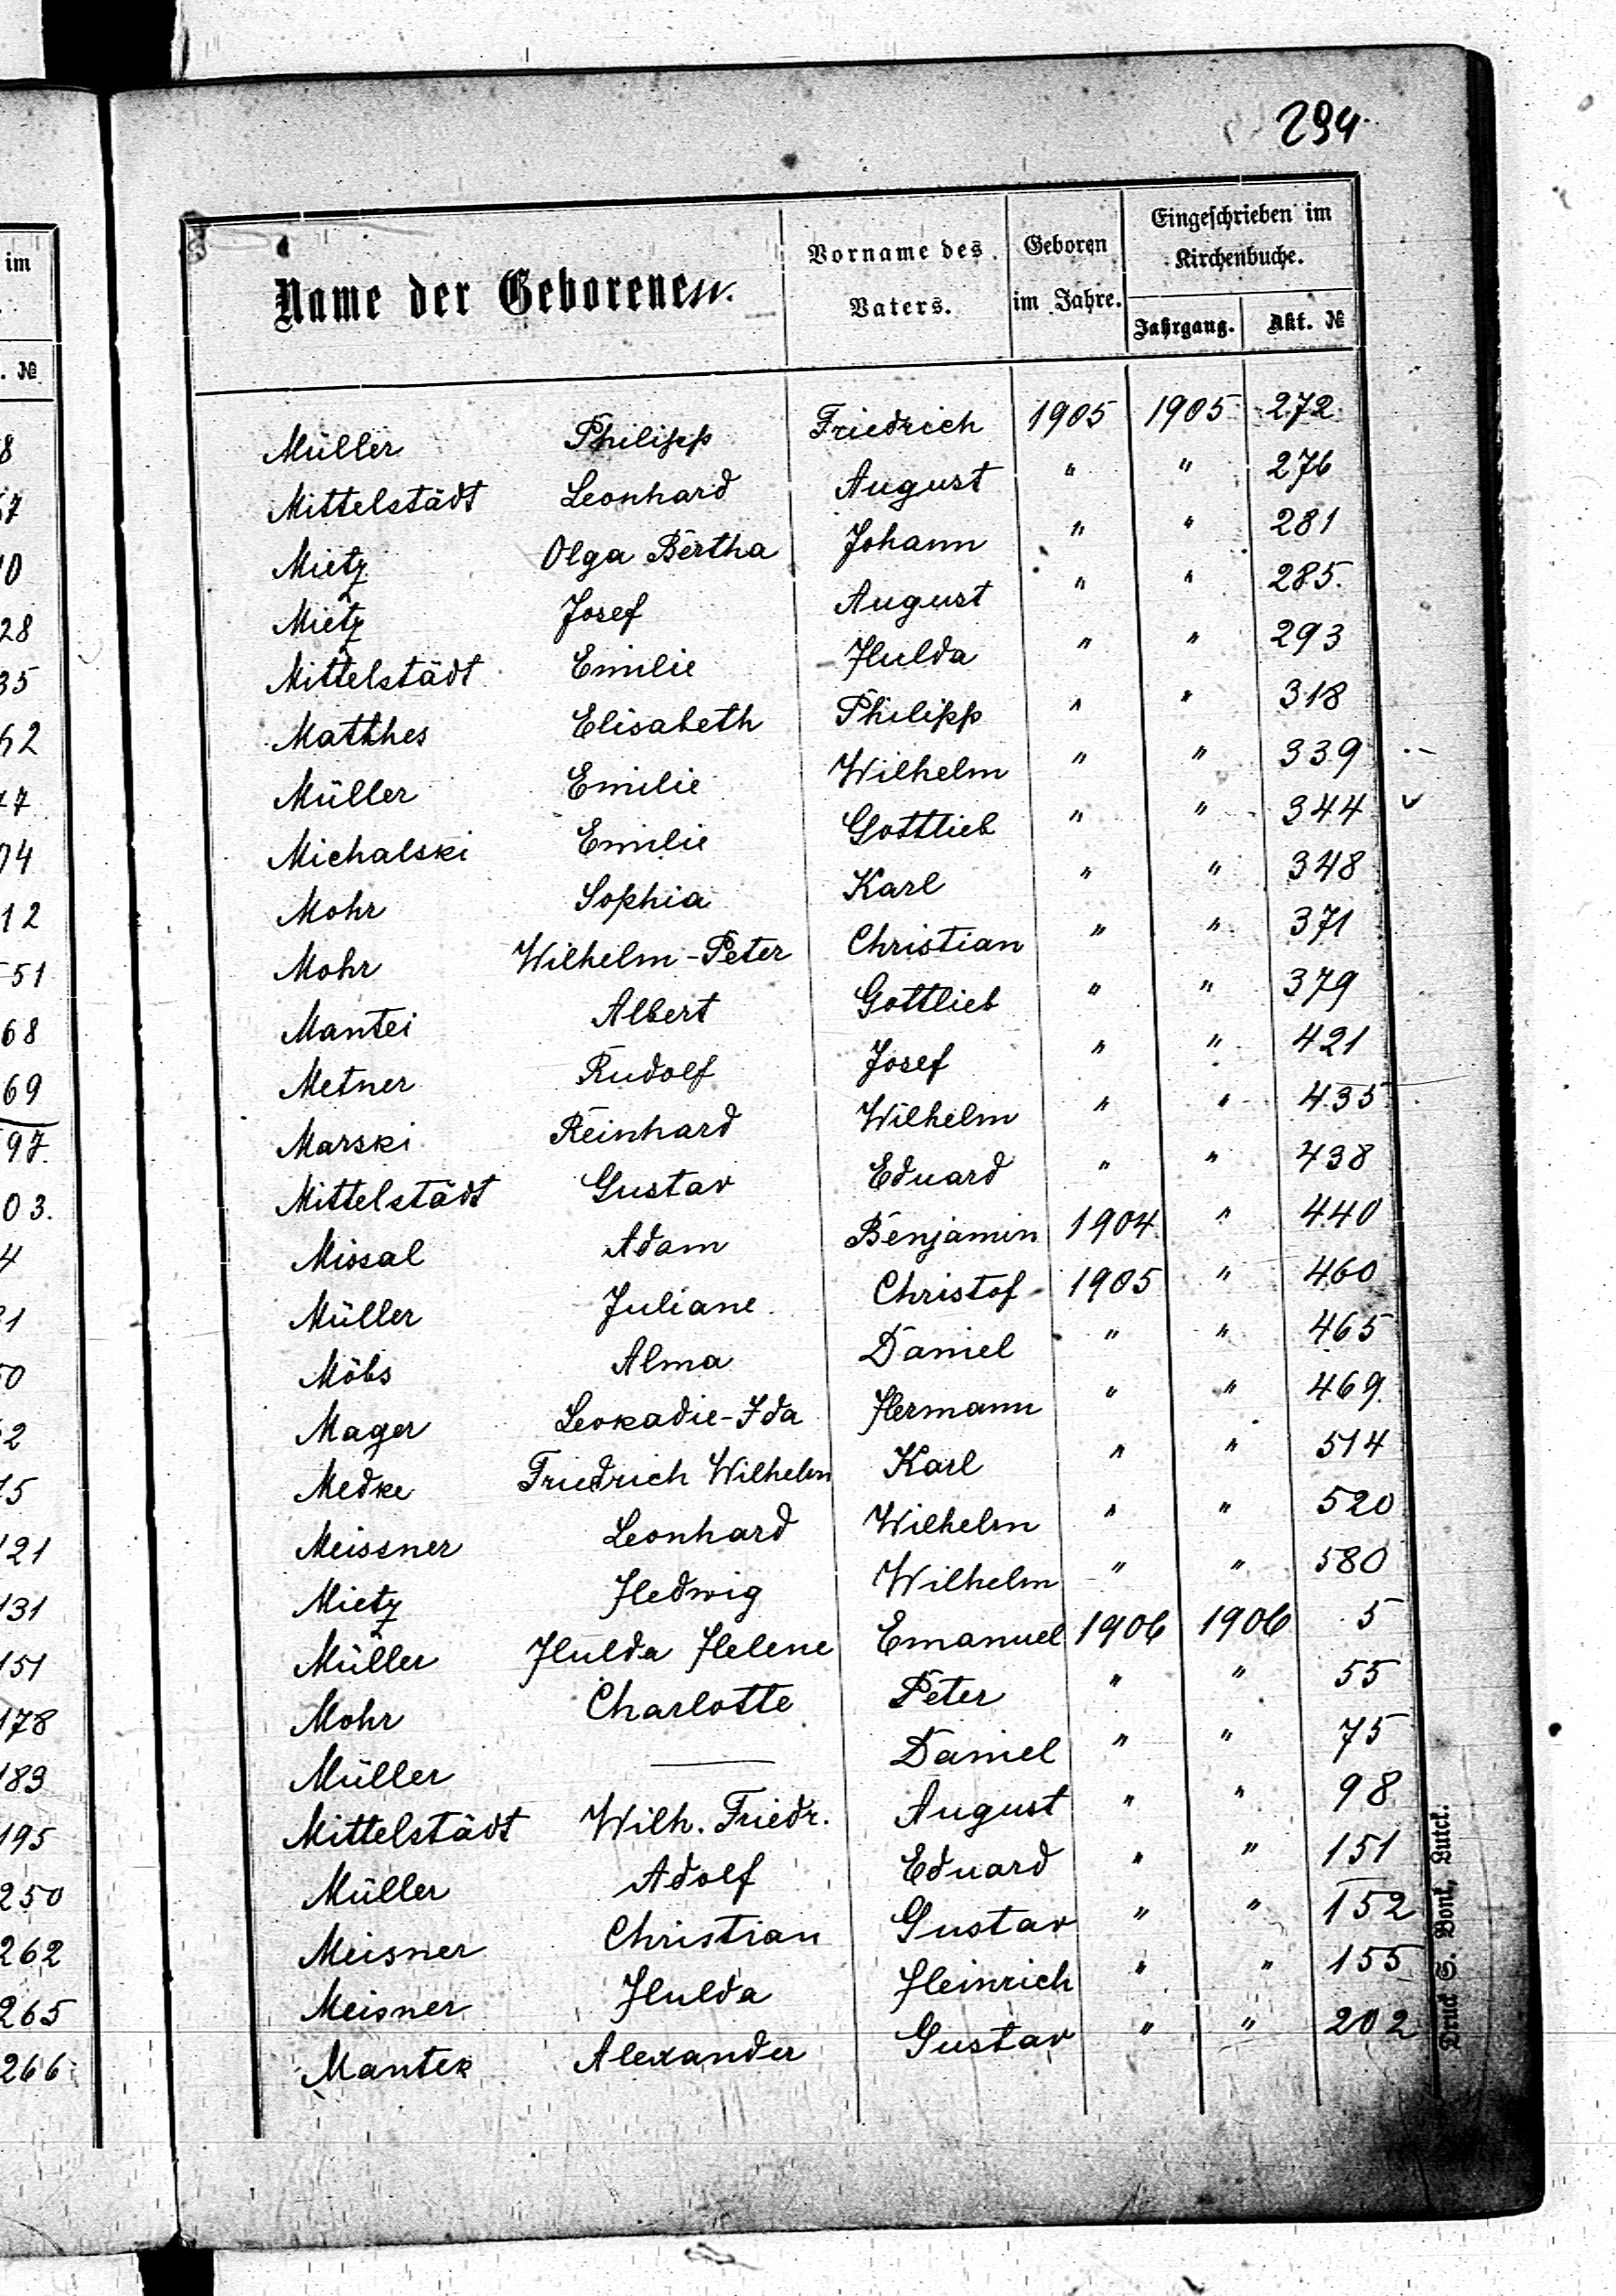 294
im
. №
8
57
10
28
35
62
74
12
51
68
69
97.
03.
4
121
131
151
178
189
195
250
262
265
266
Name der Geborenen.
Vorname des Vaters.
Geboren im Jahre.
Eingeschrieben im Kirchenbuche.
Jahrgang. Akt. №
Müller Philipp Friedrich 1905 1905 272
Mittelstädt Leonhard August " " 276
Mietz Olga Bertha Johann " " 281
Mietz Josef August " " 285.
Mittelstädt Emilie Hulda " " 293
Matthes Elisabeth Philipp " " 318
Müller Emilie Wilhelm " " 339
Michalski Emilie Gottlieb " " 344
Mohr Sophia Karl " " 348
Mohr Wilhelm-Peter Christian " " 371
Mantei Albert Gottlieb " " 379
Metner Rudolf Josef " " 421
Marski Reinhard Wilhelm " " 435
Mittelstädt Gustav Eduard " " 438
Missal Adam Benjamin 1904 " 440
Müller Juliane Christof 1905 " 460
Möbs Alma Daniel " " 465
Mager Leokadie-Ida Hermann " " 469
Medke Friedrich Wilhelm Karl " " 514
Meissner Leonhard Wilhelm " " 520
Mietz Hedwig Wilhelm " " 580
Müller Hulda Helene Emanuel 1906 1906 5
Mohr Charlotte Peter " " 55
Müller — Daniel " " 75
Mittelstädt Wilh. Friedr. August " " 98
Müller Adolf Eduard " " 151
Meisner Christian Gustav " " 152
Meisner Hulda Heinrich " " 155
Mantek Alexander Gustav " " 202
Druck S. Bonk, Luck.